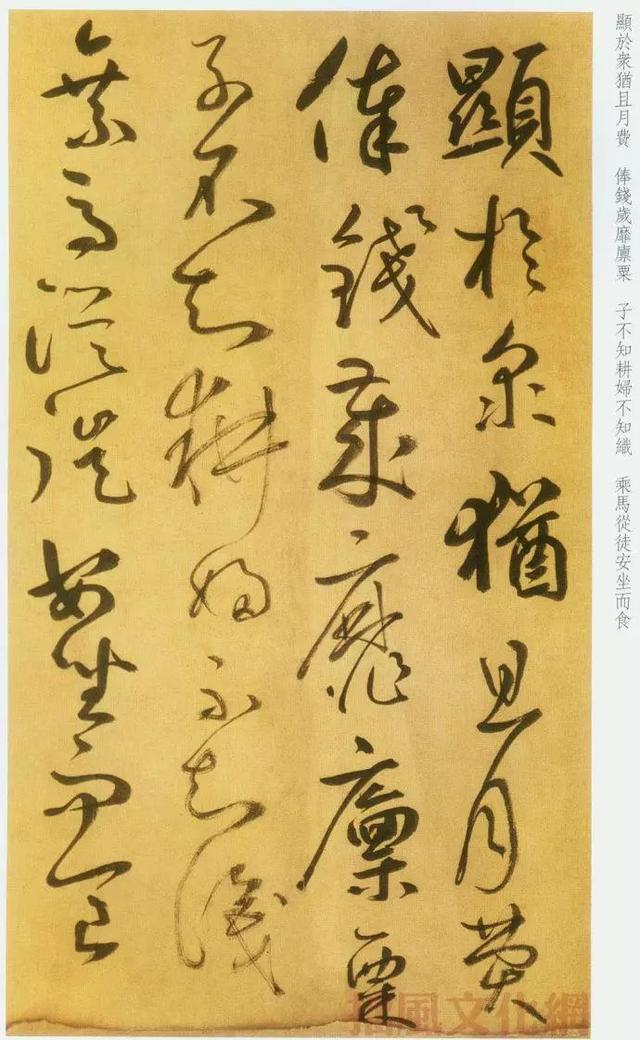 顯於衆猶且月費
俸錢歲靡廪粟
子不知耕婦不知織
乘馬從徒安坐而食
顯於衆猶且月費　俸錢歲靡廪粟　子不知耕婦不知織　乘馬從徒安坐而食
播風文化網